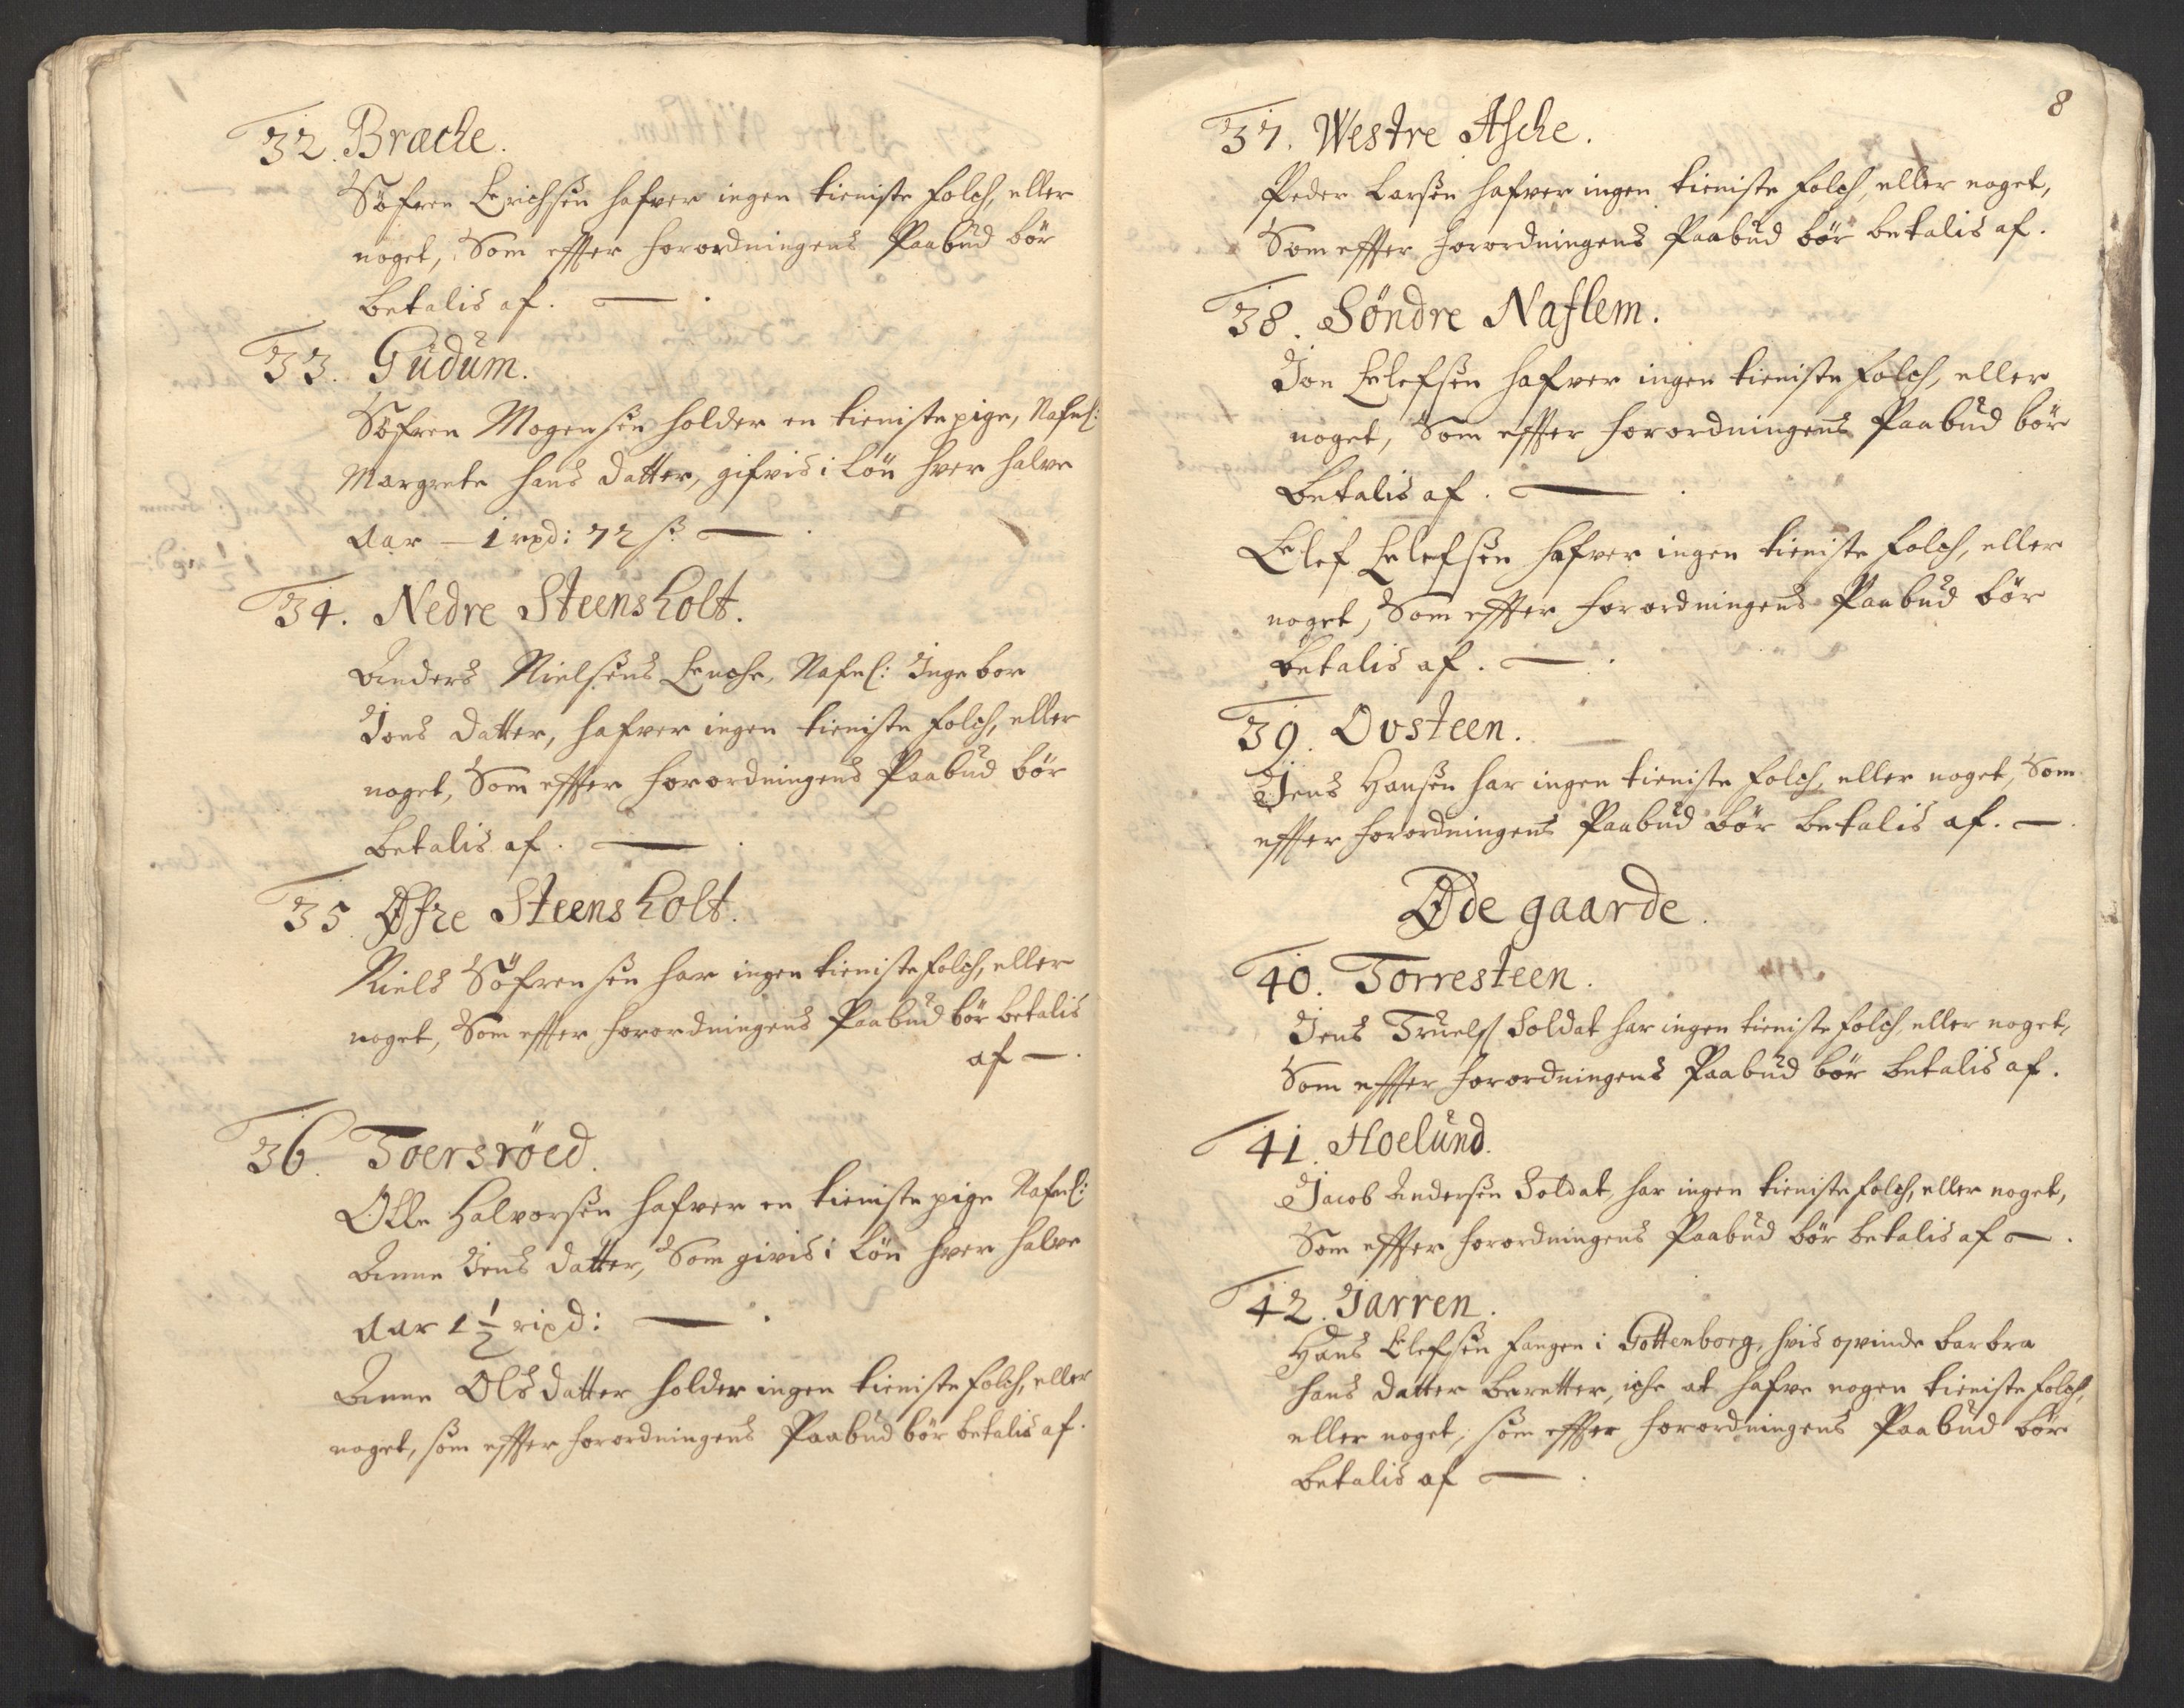 32. Bræche.
Söfren Erichsen hafver ingen tieniste folch, eller
noget, Som effter forordningens Paabud bör
betalis af.
33. Gudum.
Söfren Mogensen holder en tienistepige, Nafnl:
Margrete Hans datter, gifvis i Lön hver halve
Aar — 1 rixd: 72 s.
34. Nedre Steensholt.
Anders Nielsens Enche, Nafnl: Ingebor
Jens datter, hafver ingen tieniste folch, eller
noget, Som effter forordningens Paabud bör
betalis af.
35. Øfre Steensholt.
Niels Söfrensen har ingen tienistefolch, eller
noget, Som effter forordningens Paabud bör betalis
af —.
36. Toersröed.
Olle Halvorsen hafver en tieniste pige Nafnl:
Anne Jens datter, Som givis i Lön hver halve
Aar 1 1/2 rixd:
Anne Ols datter holder ingen tieniste folch, eller
noget, som effter forordningens Paabud bör betalis af.
8
37. Westre Asche.
Peder Larsen hafver ingen tieniste folch, eller noget,
Som effter forordningens Paabud bör betalis af.
38. Söndre Naflem.
Jon Elefsen hafver ingen tieniste folch, eller
noget, Som effter forordningens Paabud bör
betalis af.
Elef Elefsen hafver ingen tieniste folch, eller
noget, Som effter forordningens Paabud bör
betalis af.
39. Ovsteen.
Jens Hansen har ingen tieniste folch, eller noget, Som
effter forordningens Paabud bör betalis af. —.
Øde gaarde.
40. Torresteen.
Jens Truels: Soldat har ingen tieniste folch, eller noget,
Som effter forordningens Paabud bör betalis af.
41. Hoelund.
Jacob Andersen Soldat, har ingen tieniste folch, eller noget,
Som effter forordningens Paabud bör betalis af —.
42. Jarren.
Hans Elefsen fangen i Gottenborg, hvis qvinde barbra
Hans datter beretter, iche at hafve nogen tieniste folch,
eller noget, som effter forordningens Paabud bör
betalis af —.